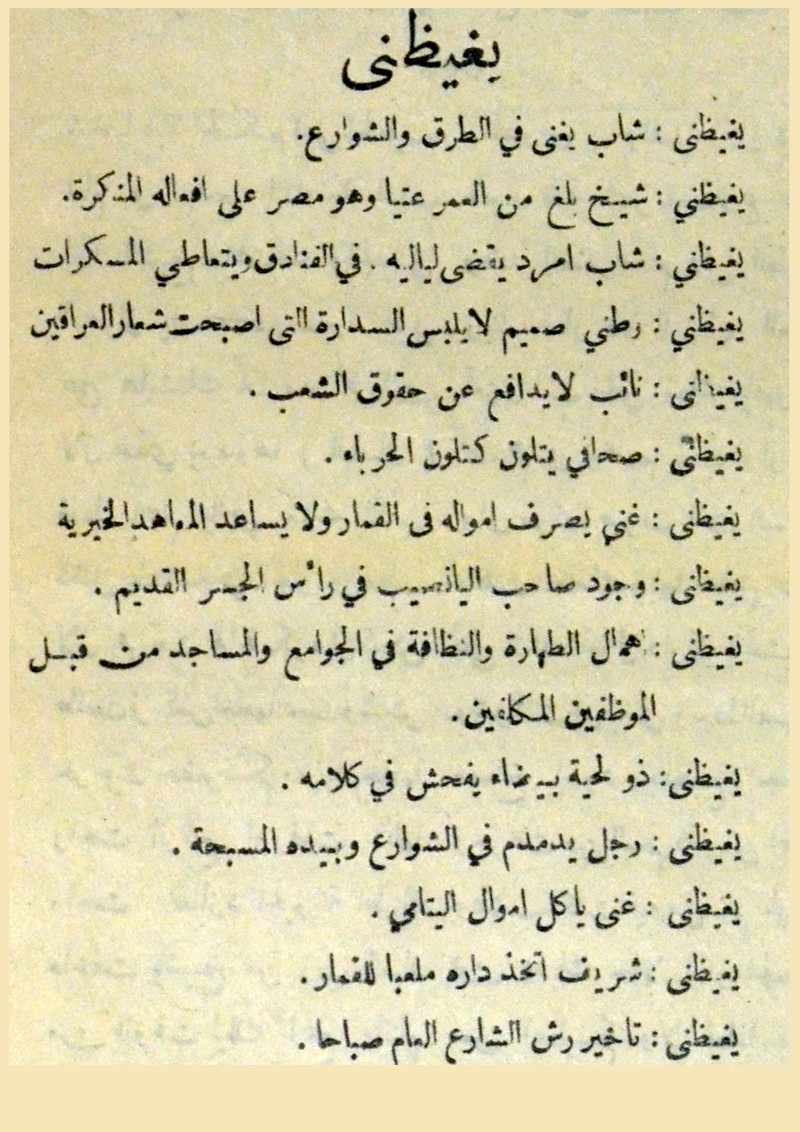 يغيظنى
يغيظنى : شاب يغنى في الطرق والشوارع.
يغيظني : شيخ بلغ من العمر عتيا وهو مصر على افعاله المنكرة.
يغيظني : شاب امرد يقضى لياليه . في الفنادق ويتعاطي المسكرات
يغيظني : وطني صميم لا يلبس السدارة التى اصبحت شعار العراقين
يغيظنى : نائب لا يدافع عن حقوق الشعب .
يغيظنى : صحافي يتلون كتلون الحرباء .
يغيظنى : غني يصرف امواله فى القمار ولا يساعد المعاهد الخيرية
يغيظنى : وجود صاحب اليانصيب في رأس الجسر القديم .
يغيظنى : اهمال الطهارة والنظافة في الجوامع والمساجد من قبل
الموظفين المكلفين.
يغيظنى : ذو لحية بيضاء يفحش في كلامه .
يغيظنى : رجل يدمدم في الشوارع وبيده المسبحة .
يغيظنى : غنى يأكل اموال اليتامي .
يغيظنى : شريف اتخذ داره ملعبا للقمار .
يغيظنى : تاخير رش الشارع العام صباحا .